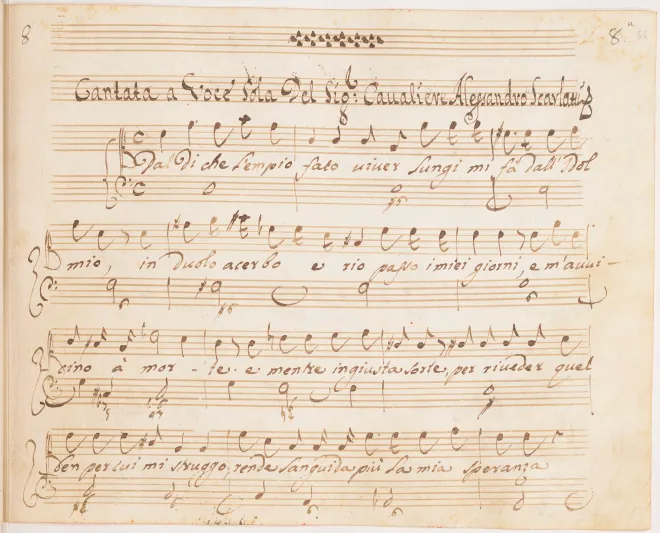 8 8.ª 51
Cantata a Voce Sola Del Sig.r Cavaliere Alessandro Scarlatti
Dal Dì che l'empio fato viver lungi mi fa dall'Idol
mio, in duolo acerbo e rio passo i miei giorni, e m'avvi-
cino à mor - te. e mentre ingiusta sorte, per riveder quel
ben per cui mi struggo, rende languida più la mia speranza